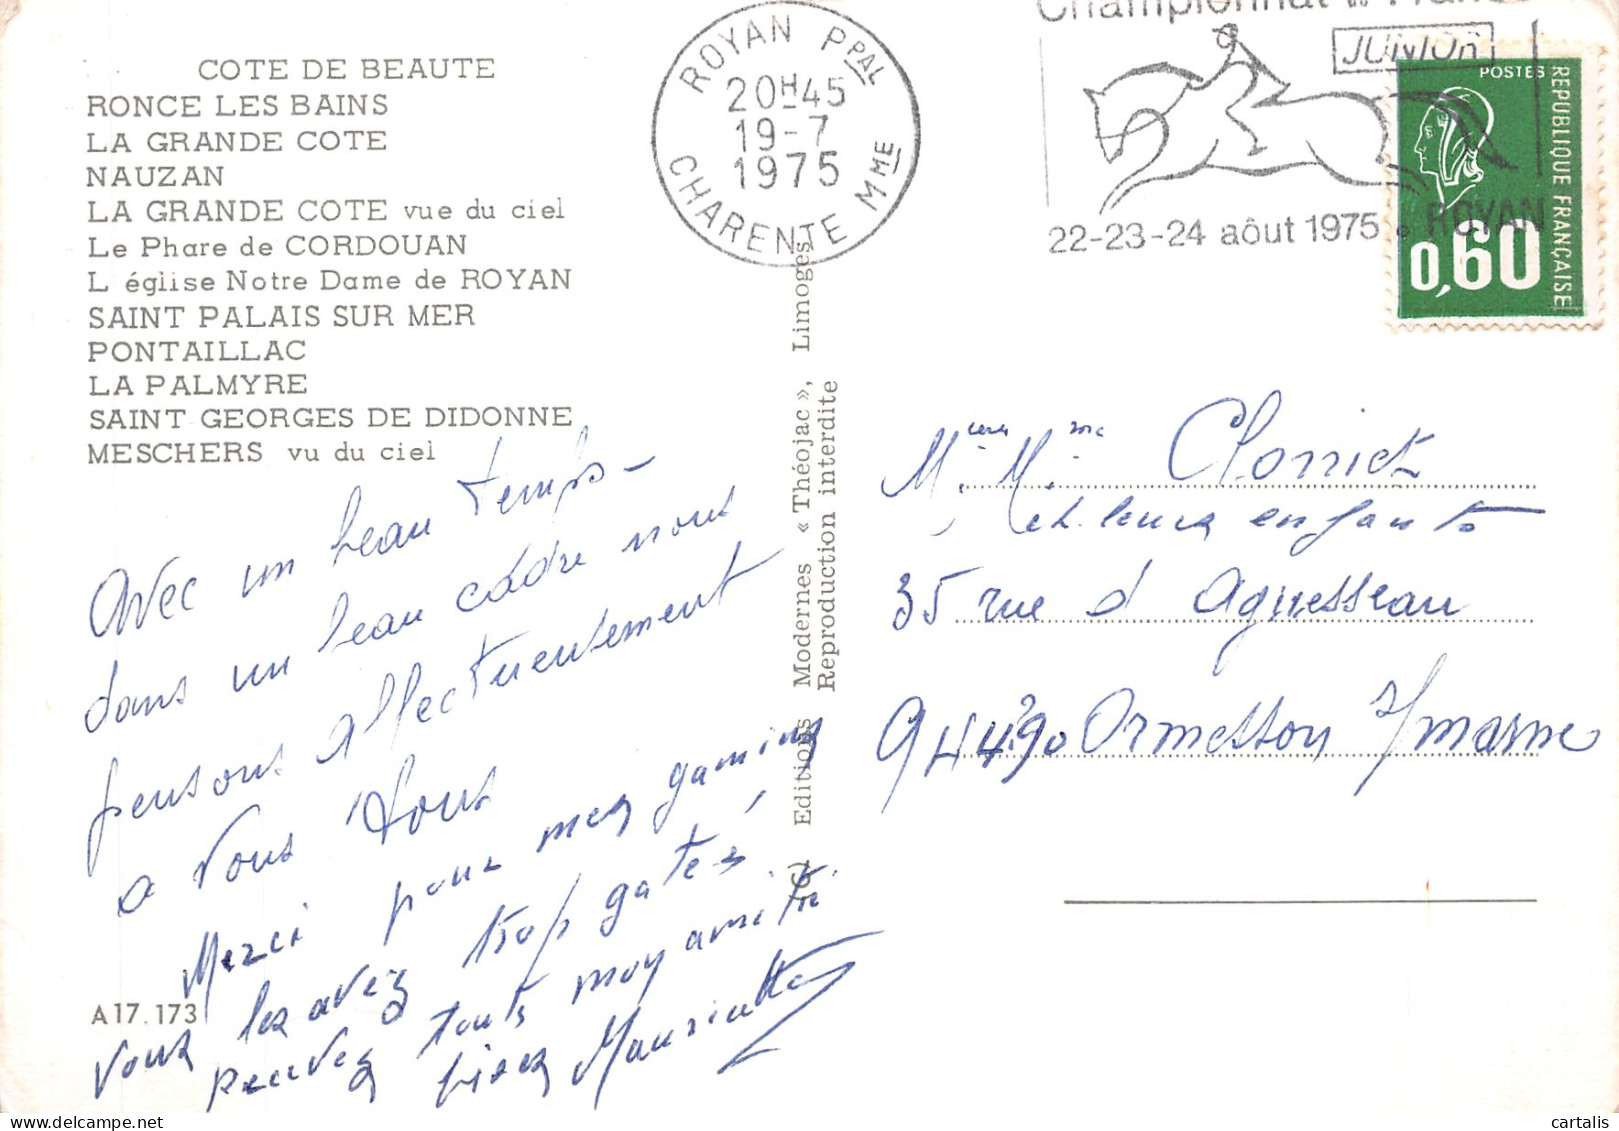 COTE DE BEAUTE
RONCE LES BAINS
LA GRANDE COTE
NAUZAN
LA GRANDE COTE vue du ciel
Le Phare de CORDOUAN
L'église Notre Dame de ROYAN
SAINT PALAIS SUR MER
PONTAILLAC
LA PALMYRE
SAINT GEORGES DE DIDONNE
MESCHERS vu du ciel
Avec un beau temps -
dans un beau cadre nous
pensons affectueusement
a vous tous
Merci pour mes gamins
vous les avez trop gatés,
recevez toute mon amitié
A17.173
Editions Modernes « Théojac », Limoges
Reproduction interdite
ROYAN PPAL
20H45
19-7
1975
CHARENTE MME
Championnat de France
JUNIOR
22-23-24 aôut 1975 • ROYAN
POSTES
REPUBLIQUE FRANÇAISE
0,60
et leurs enfants
35 rue d Aguesseau
94490 Ormesson s/marne
cartalis